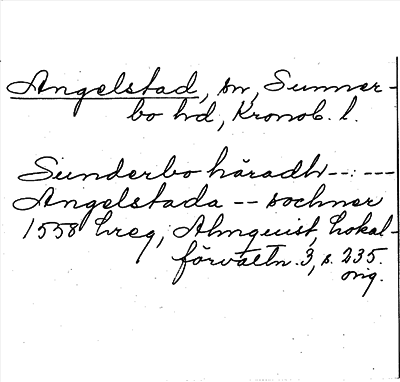 Angelstad, sn, Sunner-
bo hd, Kronob. l.
Sunderbo häradh --:---
Angelstada -- sochner
1558 Ereg, Almquist, Lokal-
förvaltn. 3, s. 235.
orig.